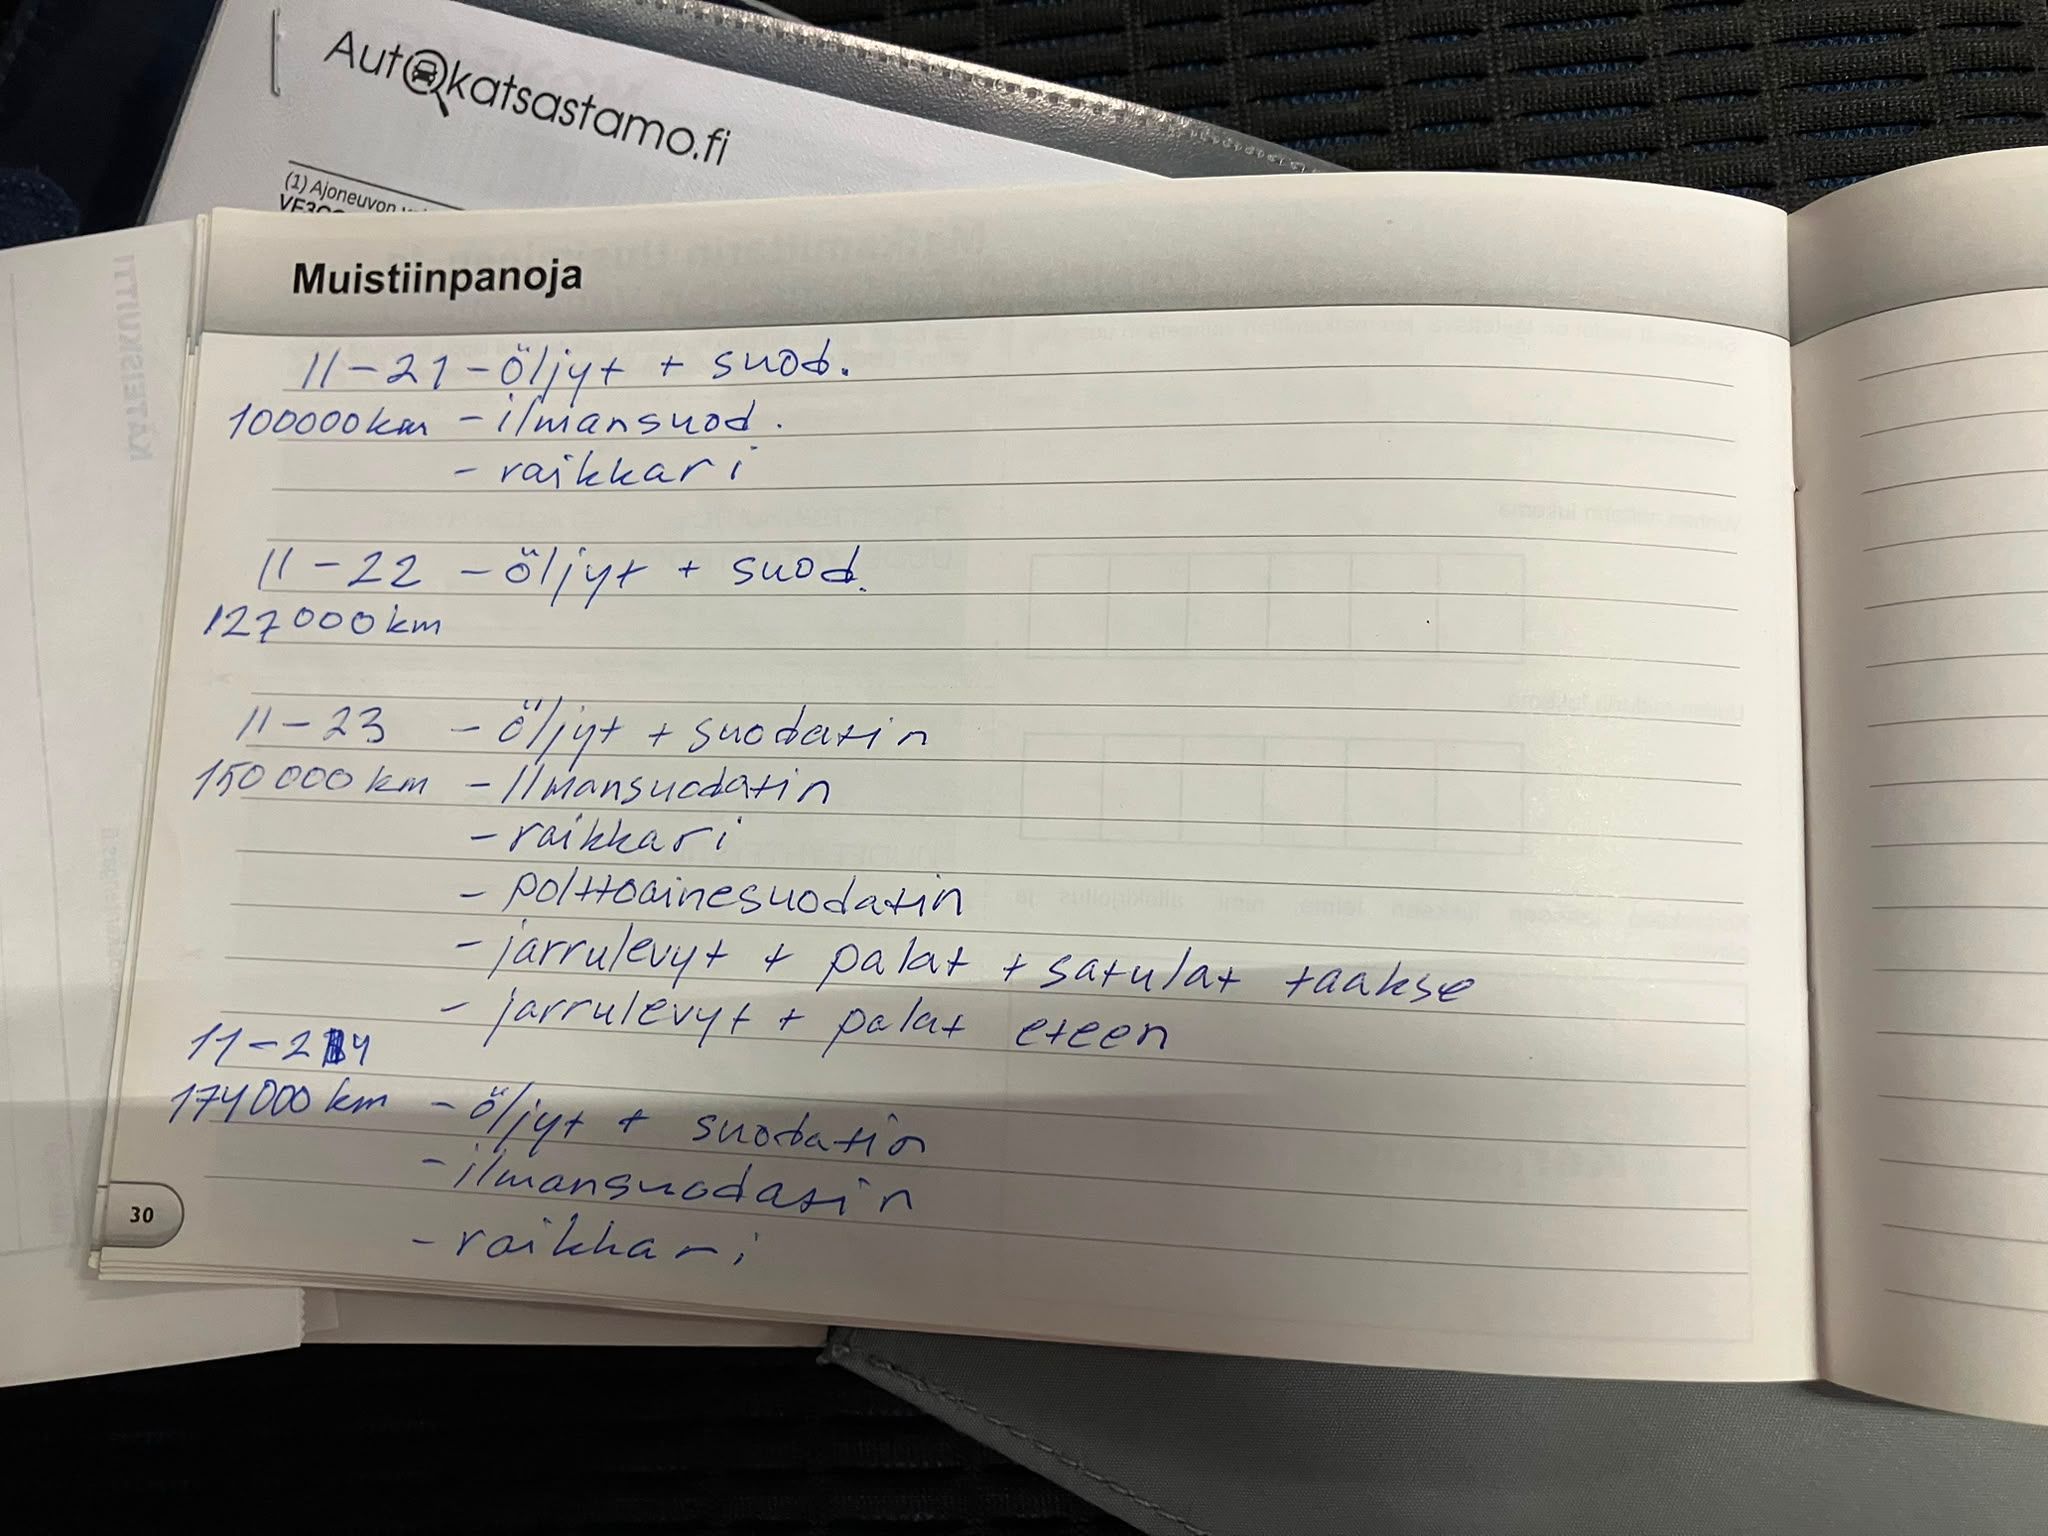 Autokatsastamo.fi
(1) Ajoneuvon
KÄTEISKUITTI
Muistiinpanoja
11-21 - öljyt + suod.
100000km - ilmansuod.
- raikkari
11-22 - öljyt + suod.
127000km
11-23 - öljyt + suodatin
150000km - Ilmansuodatin
- raikkari
- polttoainesuodatin
- jarrulevyt + palat + satulat taakse
- jarrulevyt + palat eteen
11-24
174000km - öljyt + suodatin
- ilmansuodatin
- raikkari
30